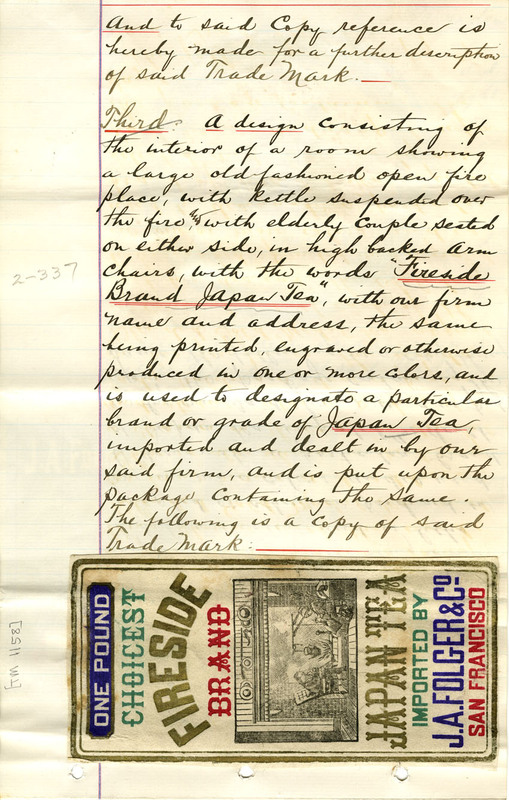 And to said Copy reference is
hereby made for a further description
of said Trade Mark.
Third. A design consisting of
the interior of a room showing
a large old fashioned open fire
place, with kettle suspended over
the fire, with elderly couple seated
on either side, in high backed arm
chairs, with the words "Fireside
Brand Japan Tea", with our firm
name and address, the same
being printed, engraved or otherwise
produced in one or more colors, and
is used to designate a particular
brand or grade of Japan Tea,
imported and dealt in by our
said firm, and is put upon the
package containing the same.
The following is a copy of said
Trade Mark:
2-337
ONE POUND
CHOICEST
FIRESIDE
BRAND
JAPAN TEA
IMPORTED BY
J.A. FOLGER & Co
SAN FRANCISCO